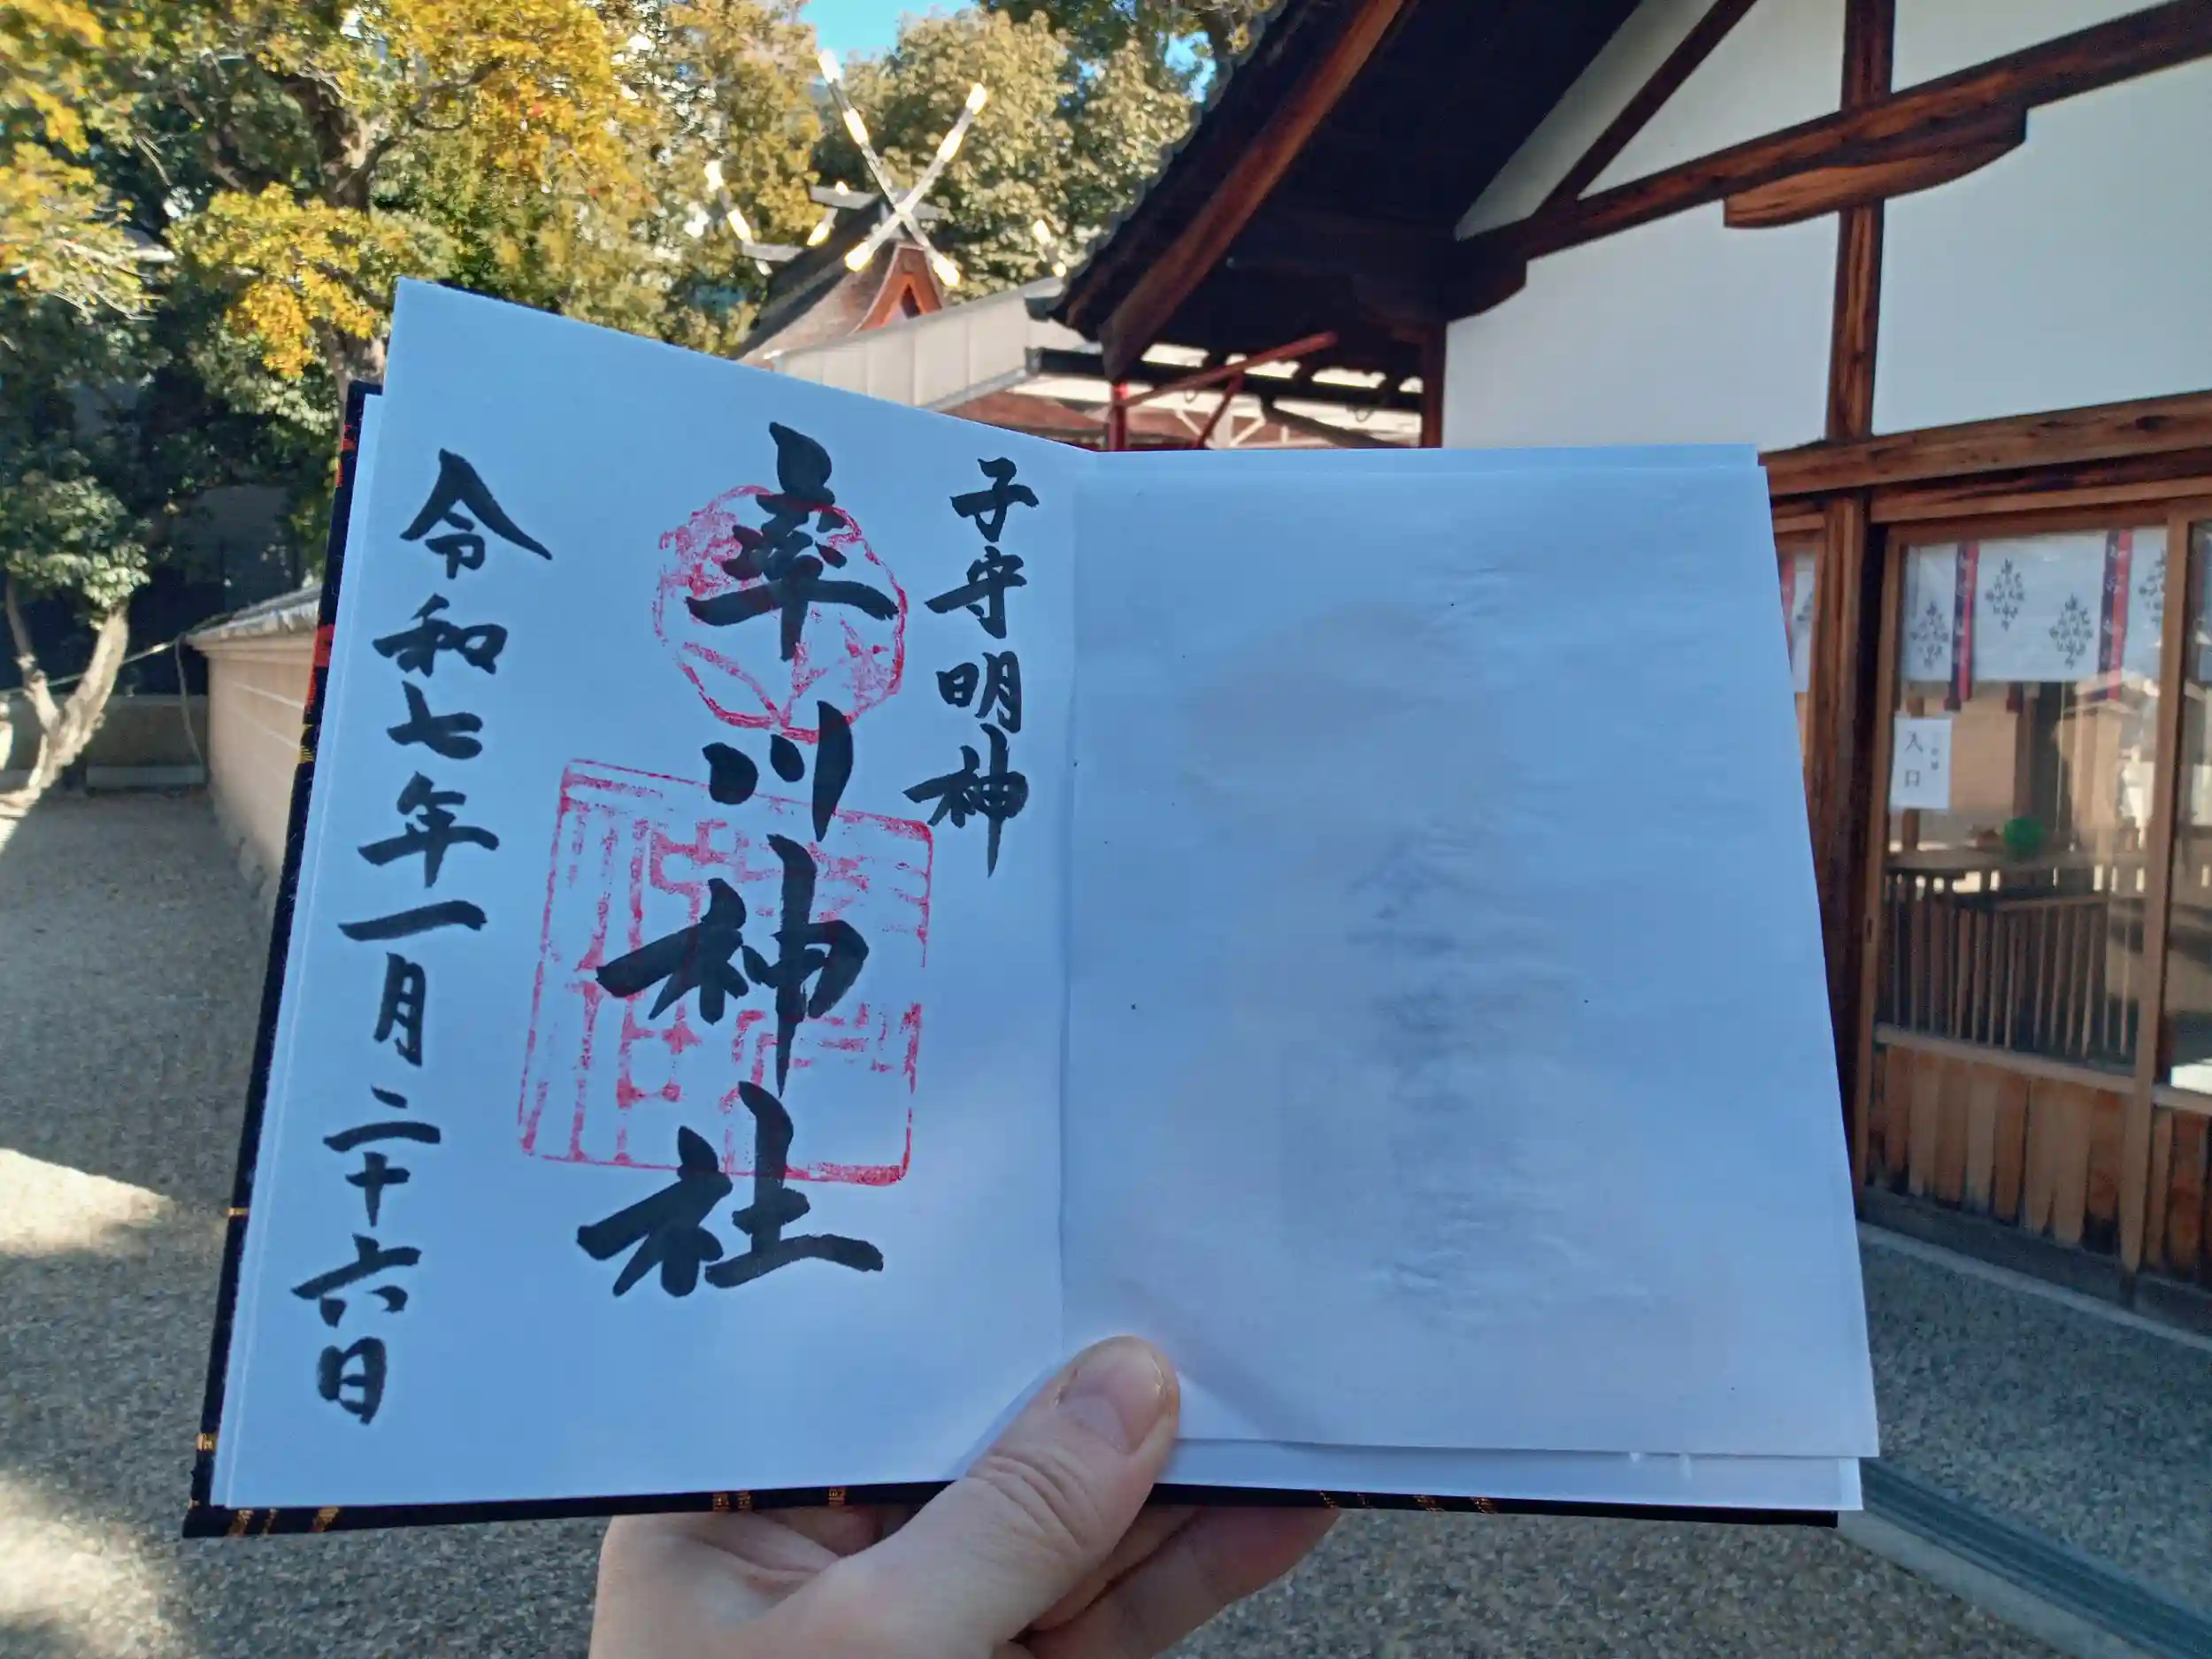 子守明神
率川神社
令和七年一月二十六日
入口